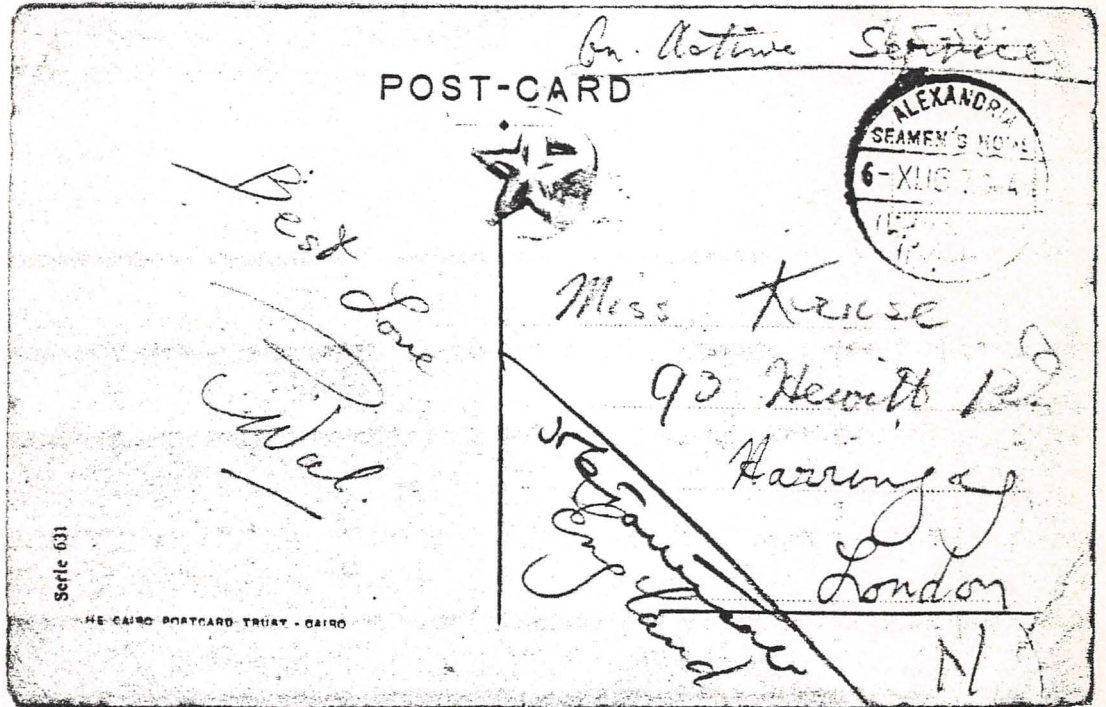 On. Active Service
POST-CARD
ALEXANDRIA
SEAMEN'S HOME
6-
Best Love
Wal.
Miss Kruse
93 Hewitt Rd
Harringay
London
N
England
Serie 631
HE CAIRO POSTCARD TRUST - CAIRO